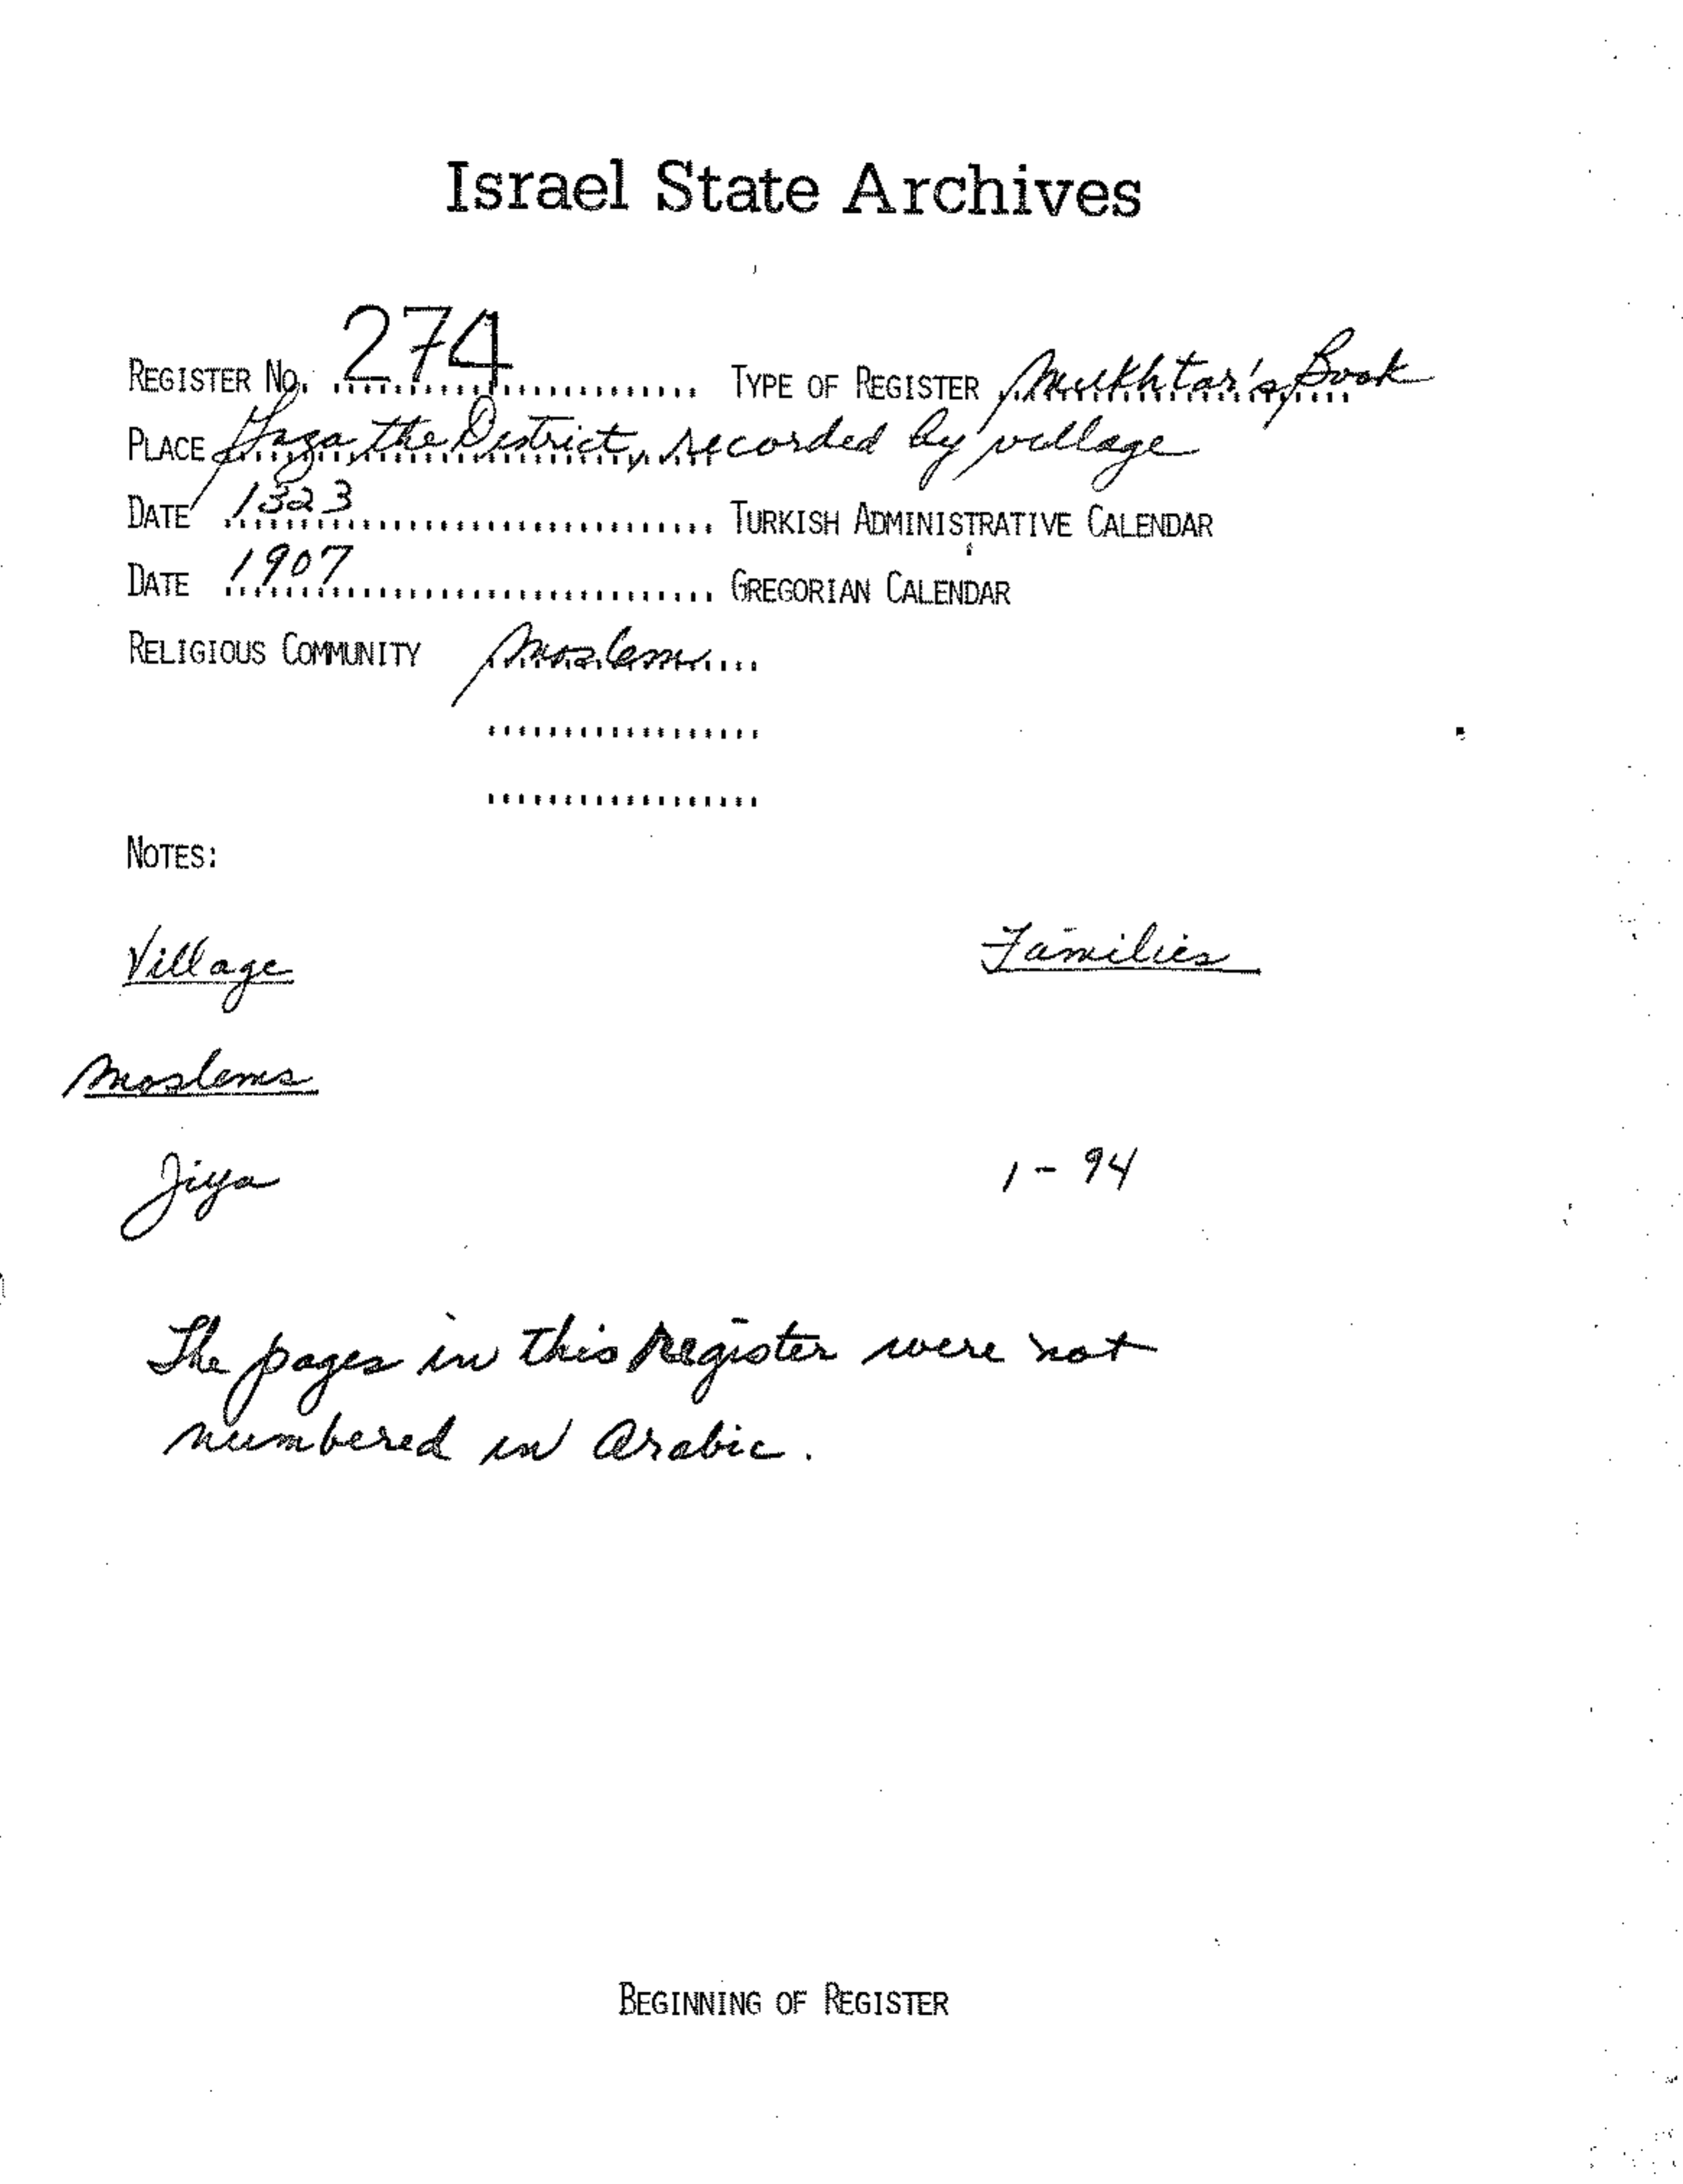 Israel State Archives
REGISTER NO. 274 TYPE OF REGISTER Mukhtar's Book
PLACE Gaza, the District, recorded by village
DATE 1323 TURKISH ADMINISTRATIVE CALENDAR
DATE 1907 GREGORIAN CALENDAR
RELIGIOUS COMMUNITY Moslem
NOTES:
Village Families
Moslems
Jiya 1 - 94
The pages in this Register were not
numbered in Arabic.
BEGINNING OF REGISTER